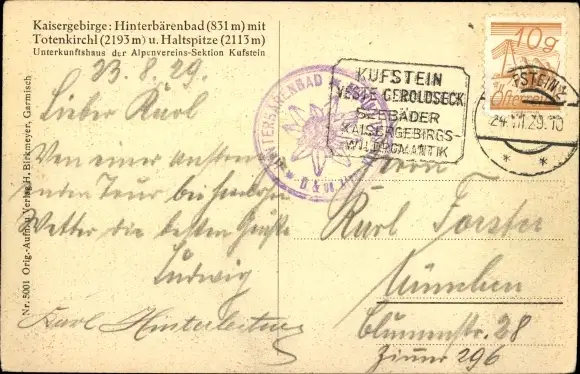 Kaisergebirge: Hinterbärenbad (831 m) mit
Totenkirchl (2193 m) u. Haltspitze (2113 m)
Unterkunftshaus der Alpenvereins-Sektion Kufstein
23.8.29.
Lieber Karl
Von einer
Tour bei
Wetter die besten Grüße
Ludwig
Karl
Nr. 5001 Orig.-Aufn. u. Verlag H. Birkmeyer, Garmisch
HINTERBÄRENBAD
KUFSTEIN
VESTE GEROLDSECK
SEEBÄDER
KAISERGEBIRGS-
WILDROMANTIK
10 g
Österreich
24.VIII.29.10
Herrn
Karl Forster
München
Blumenstr. 28
Zimmer 296